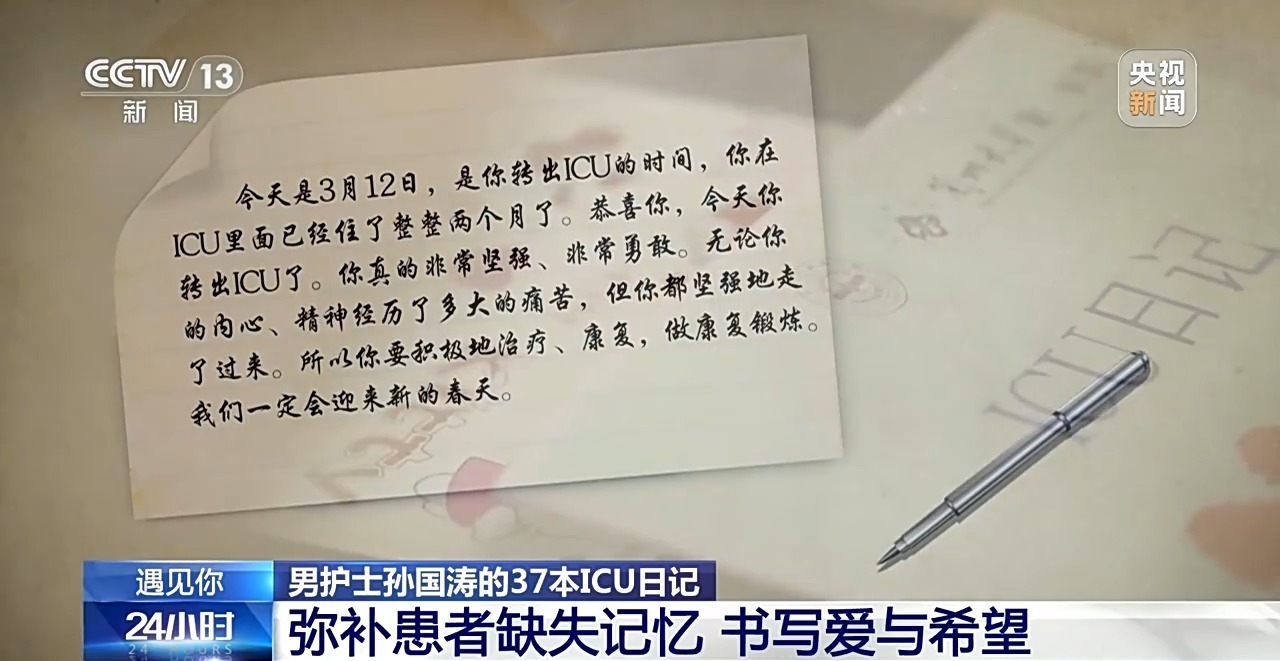 CCTV 13
新闻
央视
新闻
今天是3月12日，是你转出ICU的时间，你在
ICU里面已经住了整整两个月了。恭喜你，今天你
转出ICU了。你真的非常坚强、非常勇敢。无论你
的内心、精神经历了多大的痛苦，但你都坚强地走
了过来。所以你要积极地治疗、康复，做康复锻炼。
我们一定会迎来新的春天。
ICU日记
遇见你
男护士孙国涛的37本ICU日记
24小时
24 HOURS
弥补患者缺失记忆 书写爱与希望